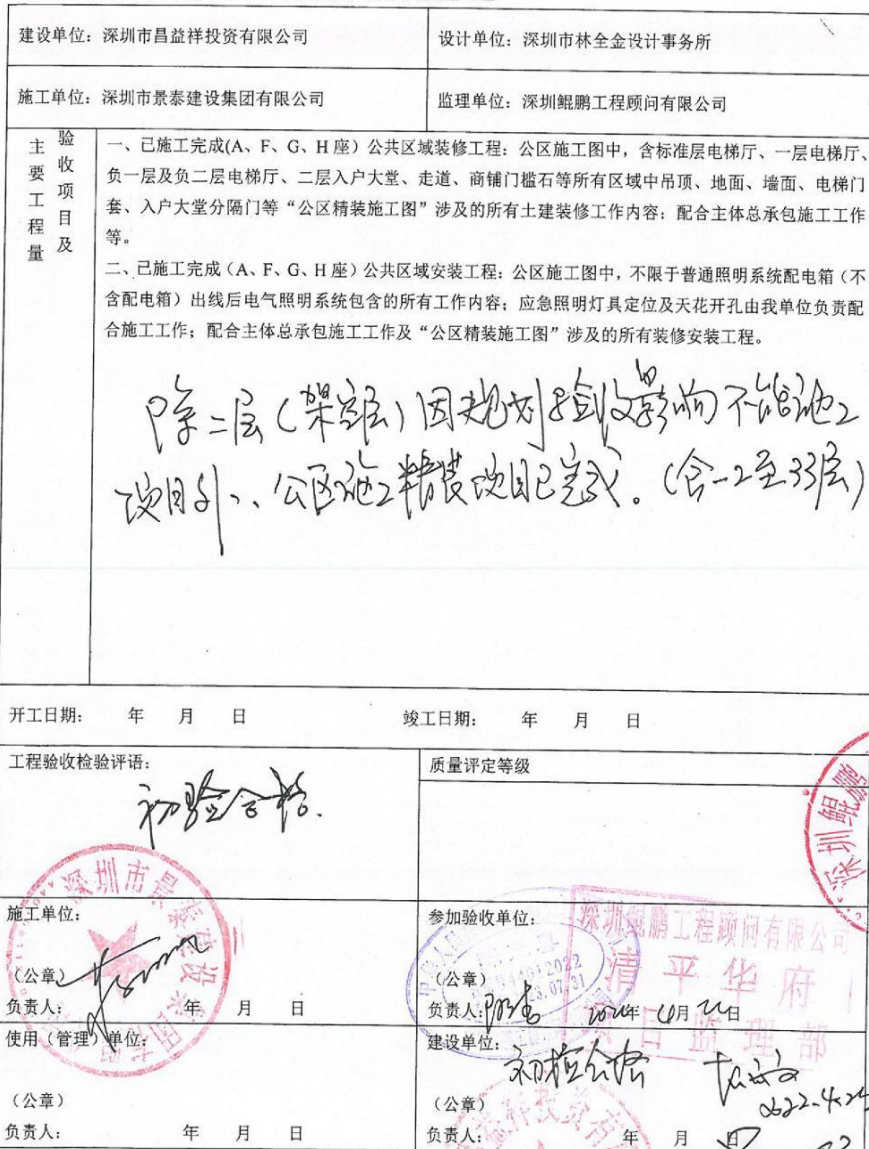 建设单位：深圳市昌益祥投资有限公司
设计单位：深圳市林全金设计事务所
施工单位：深圳市景泰建设集团有限公司
监理单位：深圳鲲鹏工程顾问有限公司
验收项目及主要工程量
一、已施工完成(A、F、G、H座）公共区域装修工程：公区施工图中，含标准层电梯厅、一层电梯厅、
负一层及负二层电梯厅、二层入户大堂、走道、商铺门槛石等所有区域中吊顶、地面、墙面、电梯门
套、入户大堂分隔门等“公区精装施工图”涉及的所有土建装修工作内容；配合主体总承包施工工作
等。
二、已施工完成（A、F、G、H座）公共区域安装工程：公区施工图中，不限于普通照明系统配电箱（不
含配电箱）出线后电气照明系统包含的所有工作内容；应急照明灯具定位及天花开孔由我单位负责配
合施工工作；配合主体总承包施工工作及“公区精装施工图”涉及的所有装修安装工程。
除二层（架空层）因规划验收影响不能施工的
项目外、公区施工精装项目已完成。（含-2至33层）
开工日期： 年 月 日
竣工日期： 年 月 日
工程验收检验评语：
初验合格.
质量评定等级
深圳市景泰建设集团有限公司
深圳鲲鹏
施工单位：
（公章）
负责人： 年 月 日
参加验收单位：
深圳鲲鹏工程顾问有限公司
清平华府
项目监理部
（公章）
负责人： 年 4月22日
使用（管理）单位：
（公章）
负责人： 年 月 日
建设单位：
初检合格
2022.4.2
（公章）
负责人： 年 月 日